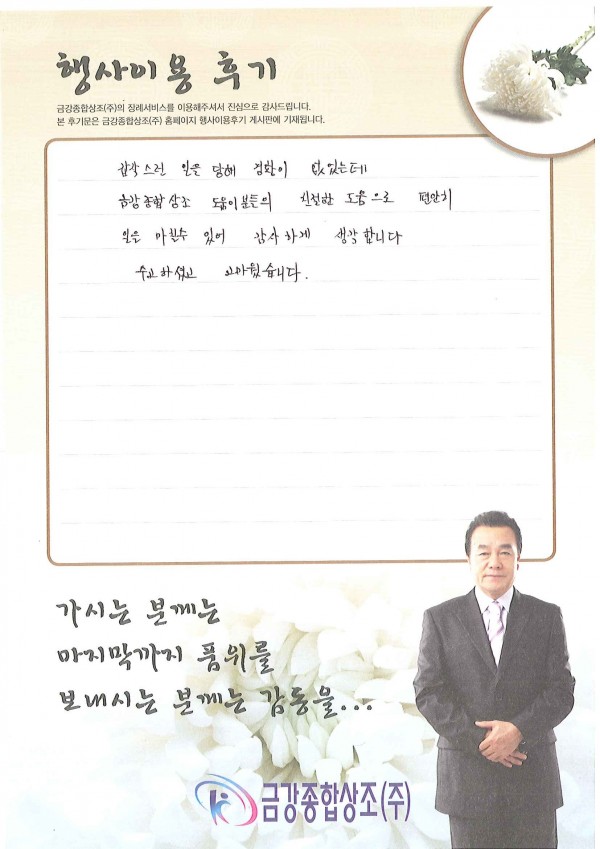 행사이용 후기
금강종합상조(주)의 장례서비스를 이용해주셔서 진심으로 감사드립니다.
본 후기문은 금강종합상조(주) 홈페이지 행사이용후기 게시판에 기재됩니다.
갑작스런 일을 당해 경황이 없었는데
금강종합상조 도움이분들의 친절한 도움으로 편안히
일을 마칠수 있어 감사하게 생각합니다
수고하셨고 고마웠습니다.
가시는 분께는
마지막까지 품위를
보내시는 분께는 감동을...
금강종합상조(주)